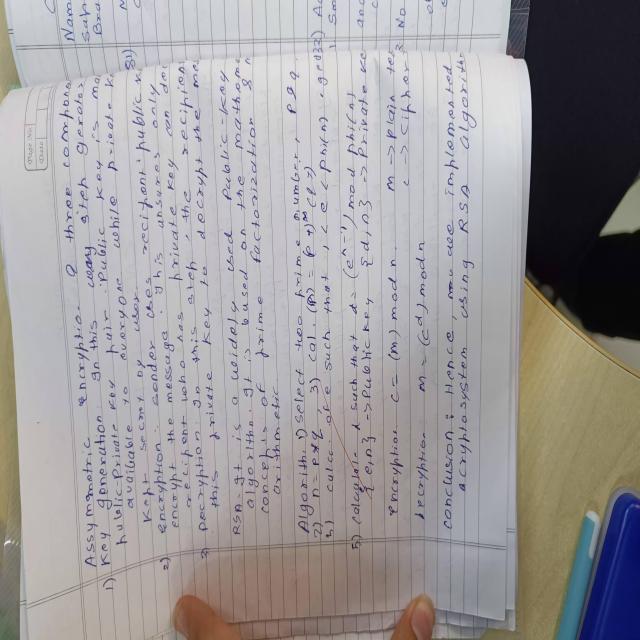 Assymmetric encryption 3 three compone
1) Key generation In this step generat
public private key pair. Public key is ma
available to everyone while private k
kept secret by user
2) encryption: sender uses recipient public k
encrypt the message. This ensures only
recipient whoes private key can de
3) Decryption: In this step, the recipien
this private key to decrypt the me
RSA: It is a widely used Public-key
algorithm. It is based on the mathema
concepts of prime factorization &
arithmetic
Algorithm 1) select two prime numbers p & q
2) n = p * q 3) cal. = (p-1) * (q-1)
4) calc of e such that 1 < e < phi(n)
5) calculate d such that d = (e^-1) mod phi(n)
{e,n} → Public key {d,n} → private ke
encryption c = (m) mod n. m → plain te
decryption m = (c^d) mod n c → cipher
conclusion: Hence, we implemented
acryptosystem using RSA algorithm